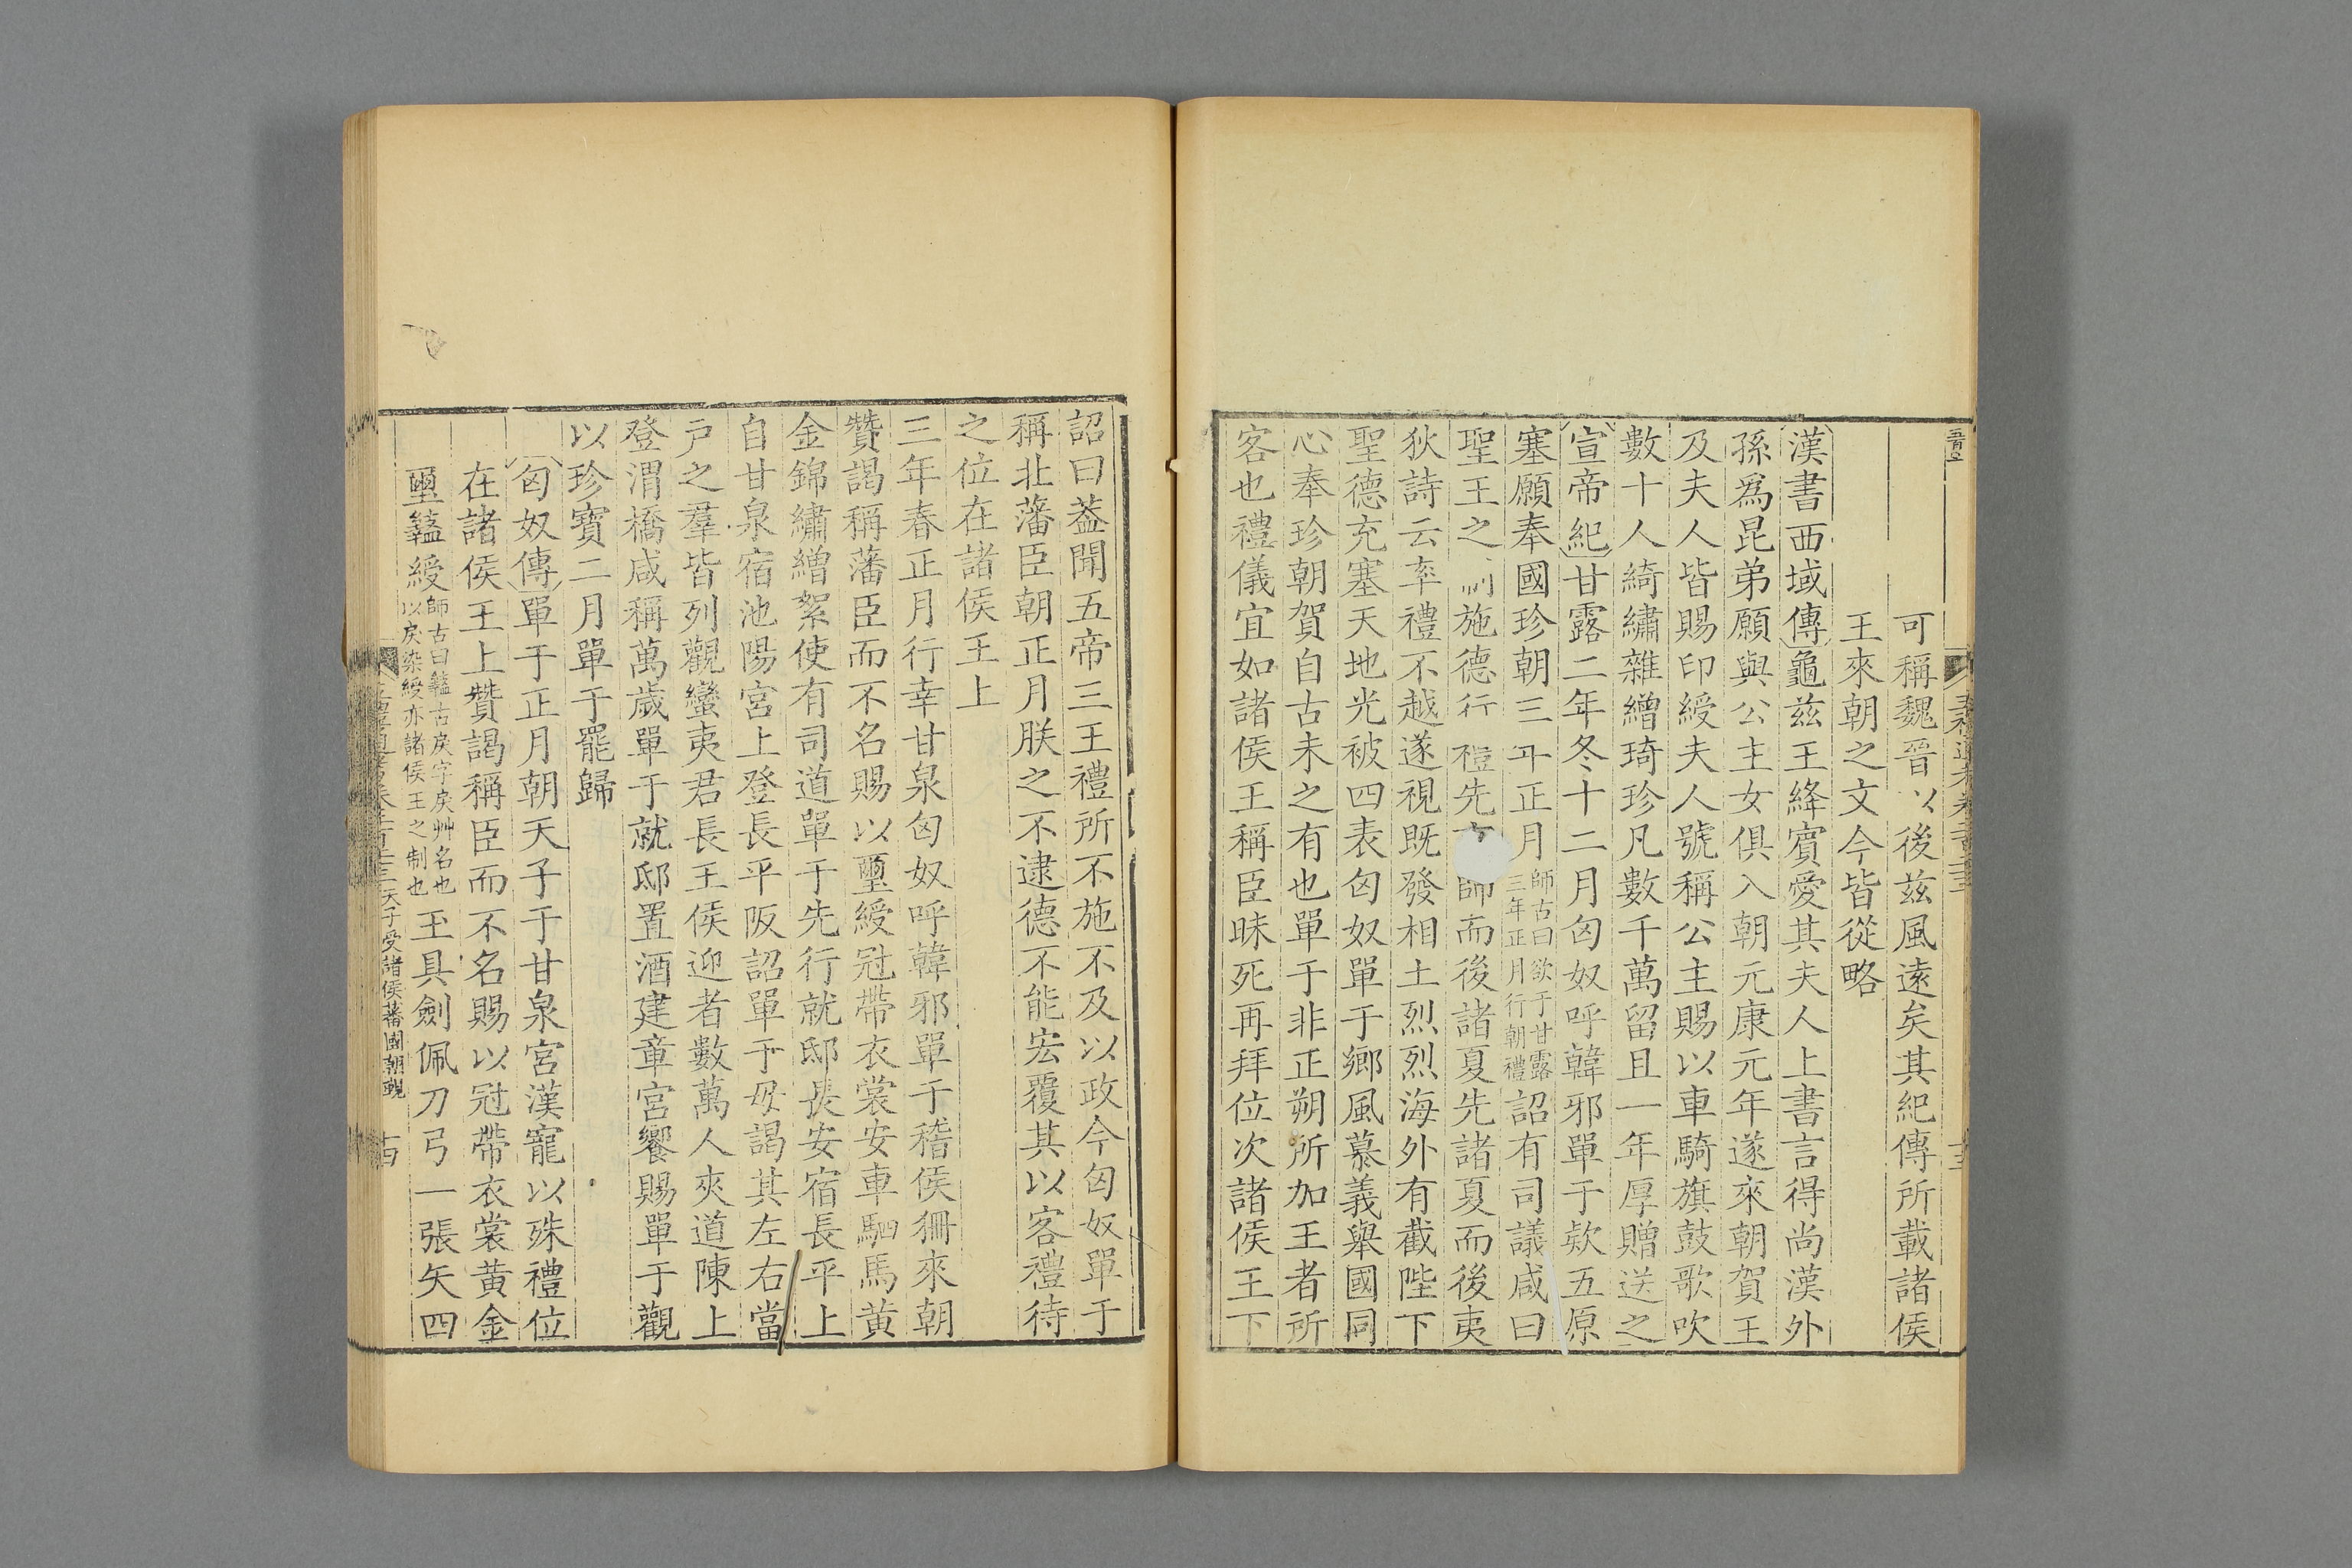 可稱魏晉以後兹風遠矣其紀傳所載諸侯
王來朝之文今皆從略
漢書西域傳龜兹王絳賓愛其夫人上書言得尚漢外
孫爲昆弟願與公主女俱入朝元康元年遂來朝賀王
及夫人皆賜印綬夫人號稱公主賜以車騎旗鼓歌吹
數十人綺繡雜繒琦珍凡數千萬留且一年厚贈送之
宣帝紀甘露二年冬十二月匈奴呼韓邪單于欵五原
塞願奉國珍朝三年正月師古曰欲于甘露三年正月行朝禮詔有司議咸曰
聖王之制施德行禮先師而後諸夏先諸夏而後夷
狄詩云率禮不越遂視既發相土烈烈海外有截陛下
聖德充塞天地光被四表匈奴單于鄉風慕義舉國同
心奉珍朝賀自古未之有也單于非正朔所加王者所
客也禮儀宜如諸侯王稱臣昧死再拜位次諸侯王下
詔曰葢聞五帝三王禮所不施不及以政今匈奴單于
稱北藩臣朝正月朕之不逮德不能宏覆其以客禮待
之位在諸侯王上
三年春正月行幸甘泉匈奴呼韓邪單于稽侯狦來朝
贊謁稱藩臣而不名賜以璽綬冠帶衣裳安車駟馬黄
金錦繡繒絮使有司道單于先行就邸長安宿長平上
自甘泉宿池陽宮上登長平阪詔單于毋謁其左右當
戸之羣皆列觀蠻夷君長王侯迎者數萬人夾道陳上
登渭橋咸稱萬歲單于就邸置酒建章宮饗賜單于觀
以珍寶二月單于罷歸
匈奴傳單于正月朝天子于甘泉宮漢寵以殊禮位
在諸侯王上贊謁稱臣而不名賜以冠帶衣裳黄金
璽盭綬師古曰盭古戾字戾艸名也以戾染綬亦諸侯王之制也玉具劍佩刀弓一張矢四
天子受諸侯蕃國朝覲